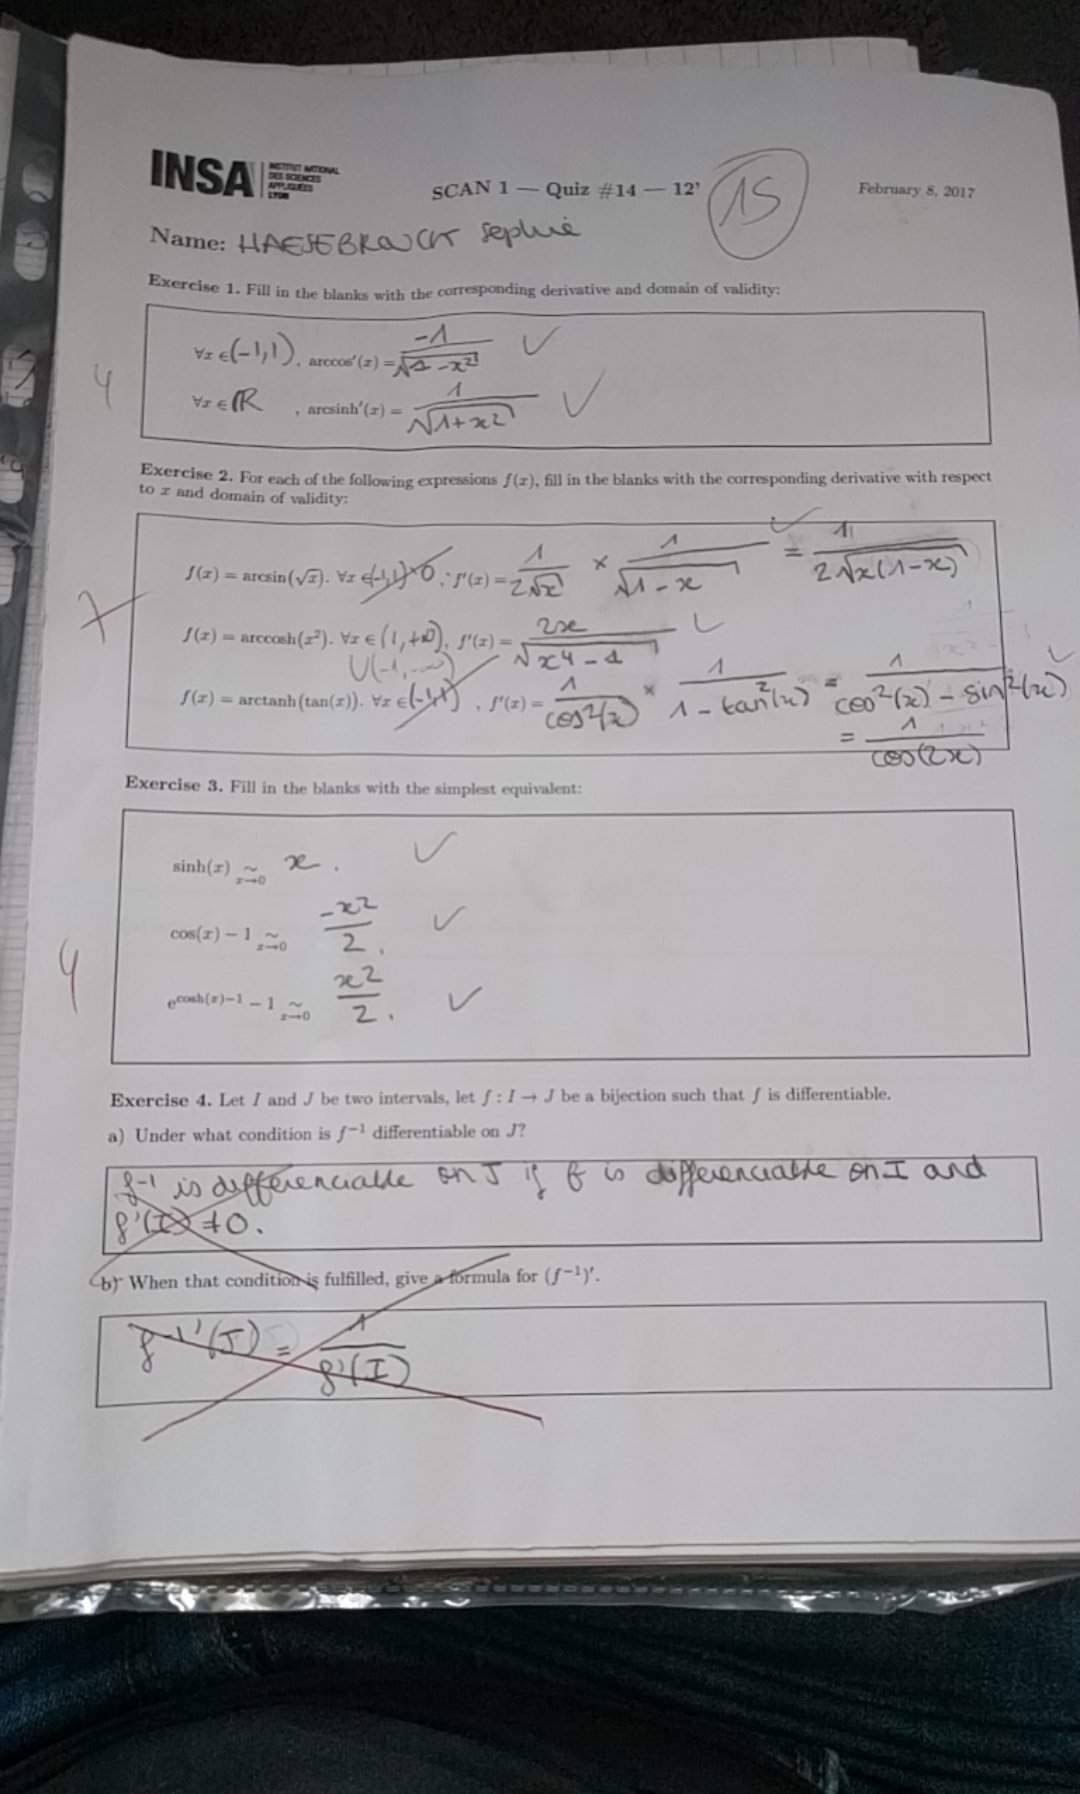 INSA INSTITUT NATIONAL DES SCIENCES APPLIQUÉES LYON
SCAN 1 — Quiz #14 — 12'
15
February 8, 2017
Name: HAESEBROUCK Sophie
Exercise 1. Fill in the blanks with the corresponding derivative and domain of validity:
∀x ∈ (-1,1), arccos'(x) = -1/√(1-x²) ✓
4
∀x ∈ ℝ, arcsinh'(x) = 1/√(1+x²) ✓
Exercise 2. For each of the following expressions f(x), fill in the blanks with the corresponding derivative with respect
to x and domain of validity:
f(x) = arcsin(√x). ∀x ∈ (-1,1)\0, f'(x) = 1/(2√x) × 1/√(1-x) = 1/(2√x(1-x)) ✓
7
f(x) = arccosh(x²). ∀x ∈ (1,+∞), f'(x) = 2x/√(x⁴-1) ✓
∪(-1,-∞)
f(x) = arctanh(tan(x)). ∀x ∈ (-1,1), f'(x) = 1/cos²(x) × 1/(1-tan²(x)) = 1/(cos²(x) - sin²(x)) ✓
= 1/cos(2x)
Exercise 3. Fill in the blanks with the simplest equivalent:
sinh(x) ~ x→0 x. ✓
cos(x) − 1 ~ x→0 -x²/2. ✓
4
e^(cosh(x)−1) − 1 ~ x→0 x²/2. ✓
Exercise 4. Let I and J be two intervals, let f : I → J be a bijection such that f is differentiable.
a) Under what condition is f⁻¹ differentiable on J?
f⁻¹ is differenciable on J if f is differenciable on I and
f'(I) ≠ 0.
b) When that condition is fulfilled, give a formula for (f⁻¹)'.
f⁻¹'(J) = 1/f'(I)